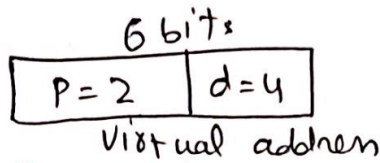 6 bits
P = 2 d = 4
Virtual address